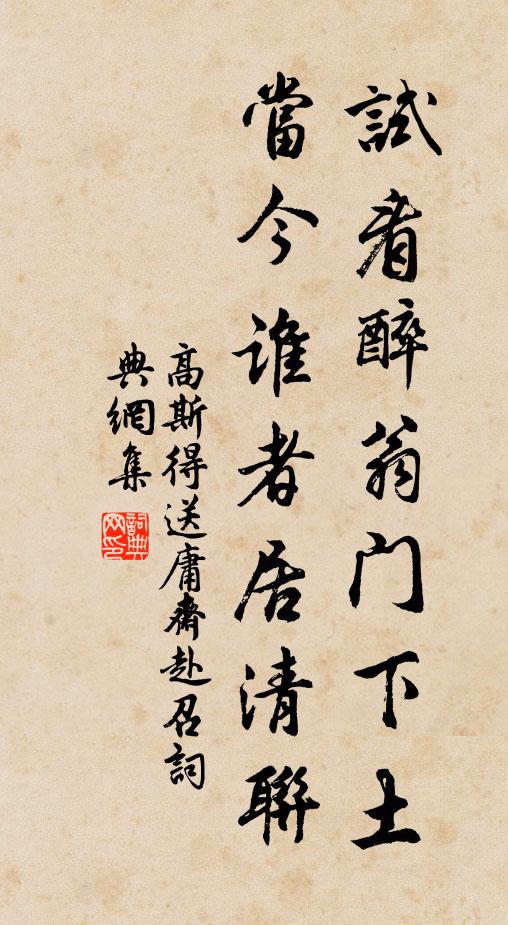 試看醉翁門下土
當今誰者居清聯
高斯得送庸齋赴召詞
典網集
詞典網印